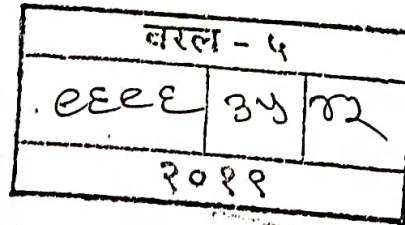 बरल - ५
९६९६ ३५ ४२
२०१९